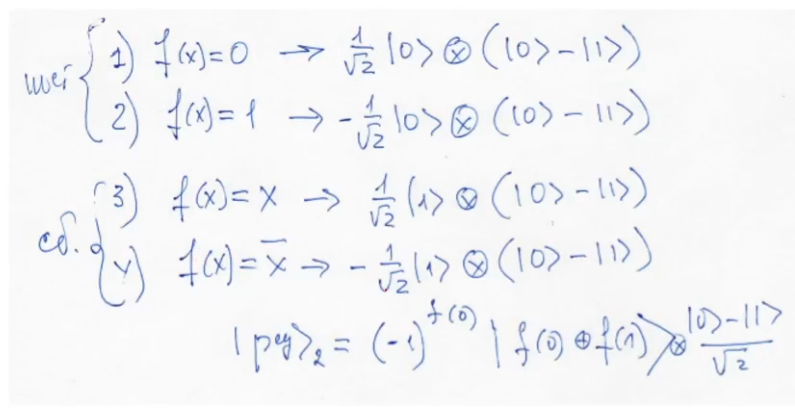 1) f(x)=0 → 1/√2 |0> ⊗ (|0> - |1>)
2) f(x)=1 → -1/√2 |0> ⊗ (|0> - |1>)
3) f(x)=x → 1/√2 |1> ⊗ (|0> - |1>)
сб. 4) f(x)=x̄ → -1/√2 |1> ⊗ (|0> - |1>)
| рег>₂ = (-1)^f(0) | f(0) ⊕ f(1)> ⊗ (|0> - |1>)/√2